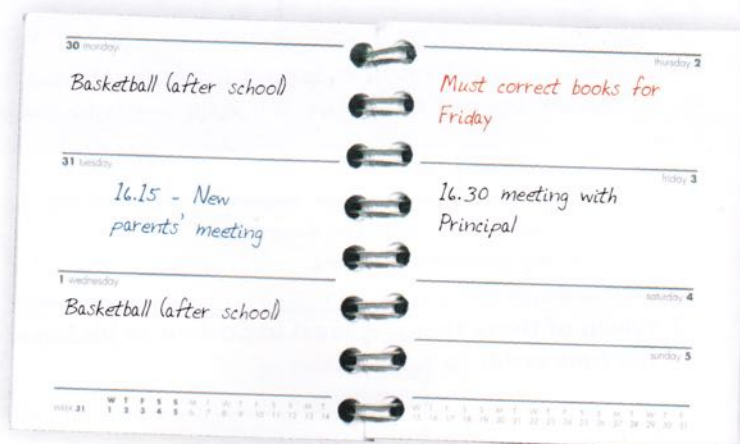 30 monday
Basketball (after school)
31 tuesday
16.15 - New
parents' meeting
1 wednesday
Basketball (after school)
WEEK 31
W T F S S M T W T F S S M T
1 2 3 4 5 6 7 8 9 10 11 12 13 14
thursday 2
Must correct books for
Friday
friday 3
16.30 meeting with
Principal
saturday 4
sunday 5